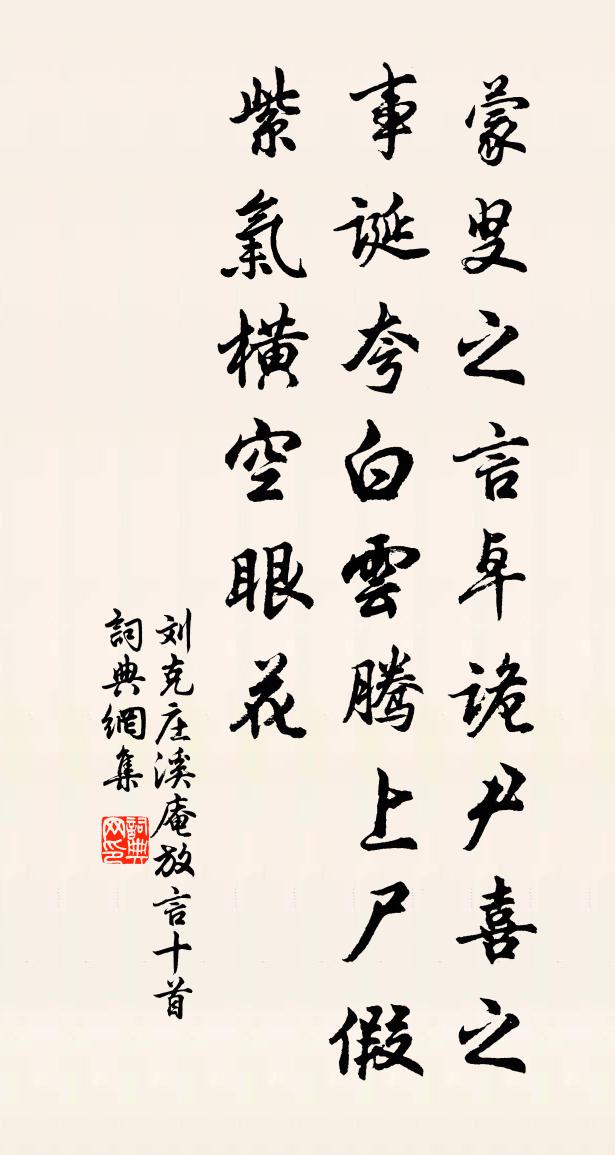 蒙叟之言卓詭尹喜之
事誕夸白雲騰上尸假
紫氣横空眼花
刘克庄溪庵放言十首
詞典網集
詞典
网印